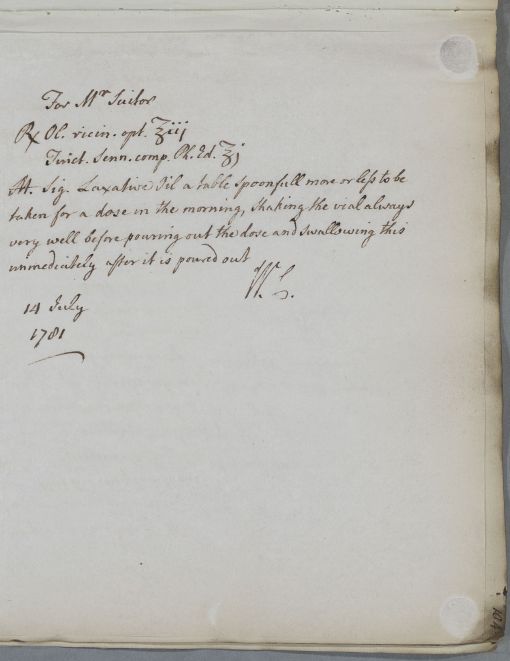 For Mr Suitor
℞ Ol. ricin. opt. ℥iij
Tinct. Senn. comp. Ph. Ed. ℥j
M Sig. Laxative Oil a table spoonfull more or less to be
taken for a dose in the morning, shaking the vial always
very well before pouring out the dose and swallowing this
immediately after it is poured out
W. C.
14 July
1781
104